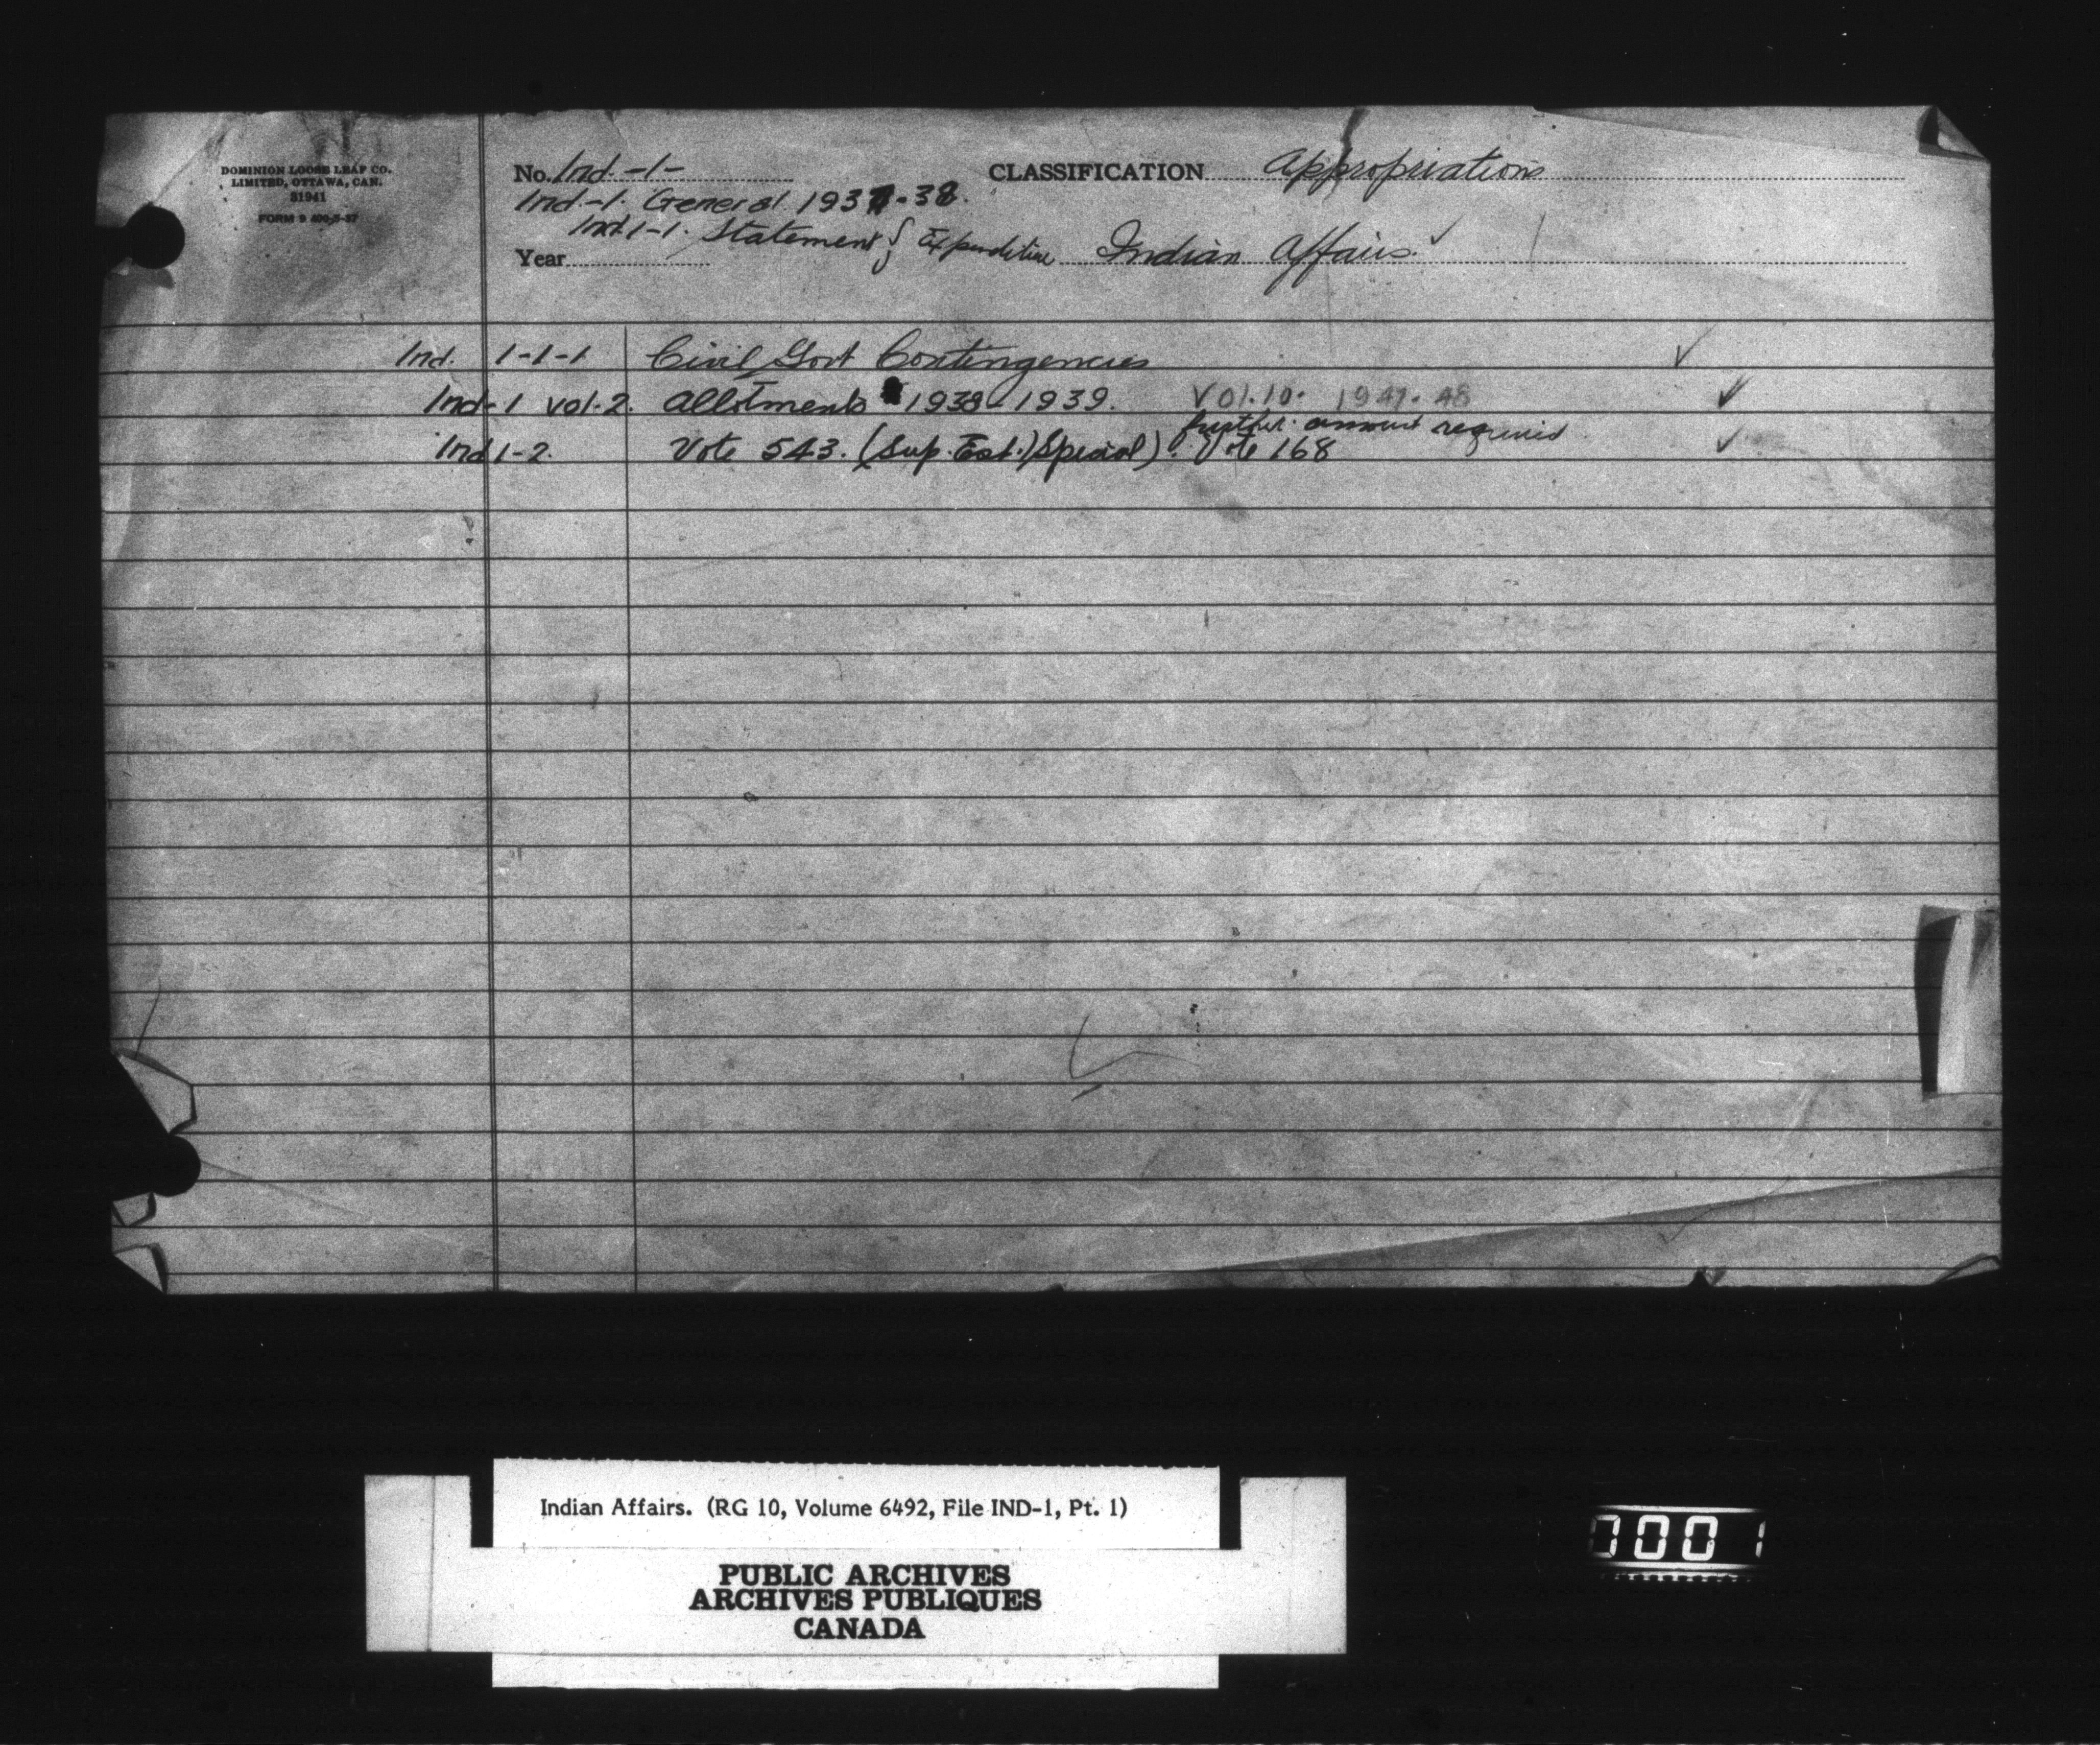 DOMINION LOOSE LEAF CO.
LIMITED, OTTAWA, CAN.
31941
FORM 9 400-5-37
No. Ind.-1-
CLASSIFICATION Appropriations
Ind-1. General 1937-38.
Ind 1-1. Statement of Expenditure
Year
Indian Affairs.
Ind. 1-1-1 Civil Govt Contingencies
Ind-1 vol.2. Allotments 1938-1939. Vol.10. 1947-48
further amount required
Ind 1-2. Vote 543. (Sup. Est.) Special). Vote 168
Indian Affairs. (RG 10, Volume 6492, File IND-1, Pt. 1)
PUBLIC ARCHIVES
ARCHIVES PUBLIQUES
CANADA
0001